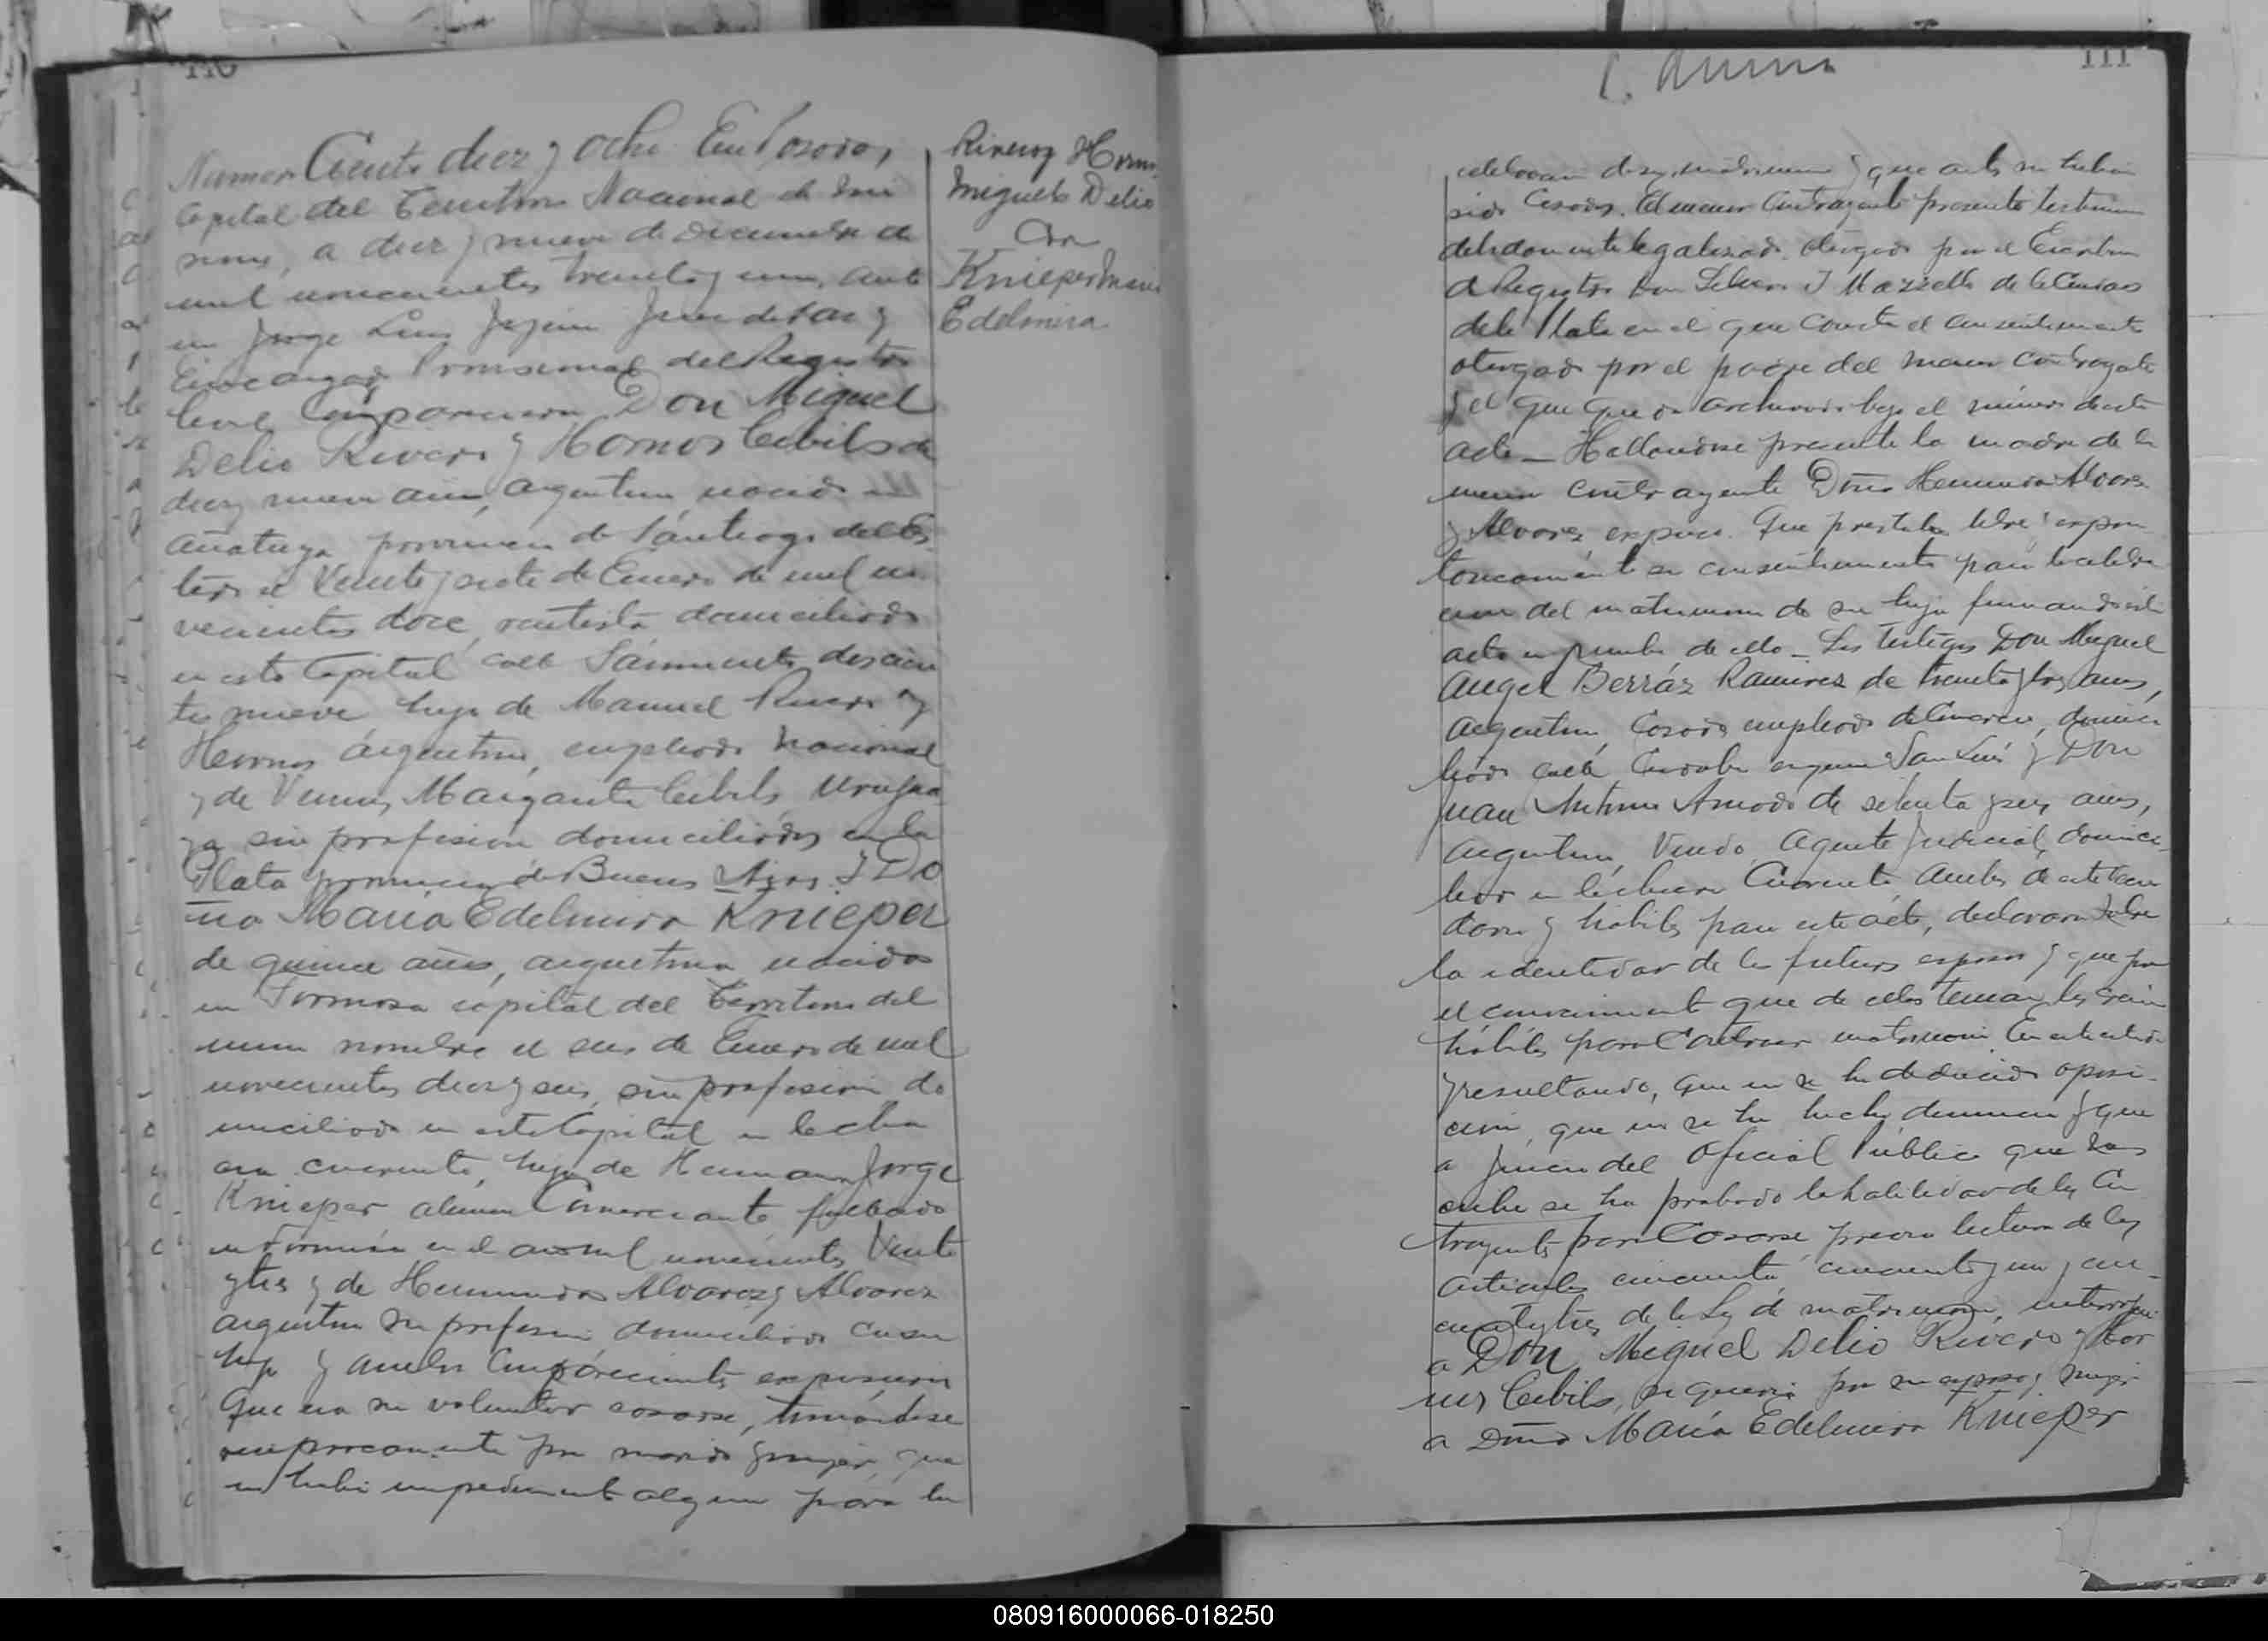 110
Numero Ciento diez y ocho. En Posadas,
Capital del Territorio Nacional de Misi
ones, a diez y nueve de Diciembre de
mil novecientos treinta y uno, ante
mi Jorge Luis Juez de Paz y
Encargado Provisional del Registro
Civil Comparecieron Don Miguel
Delio Rivero y Hornos Cibils de
diez y nueve años, argentino, nacido en
Añatuya provincia de Santiago del Es
tero el Veinte y siete de Enero de mil no
vecientos doce, rentista domiciliado
en esta Capital calle Sarmiento doscien
tos nueve hijo de Manuel Rivero y
Hornos argentino, empleado nacional
y de Margarita Cibils, Urugua
ya sin profesion domiciliados en La
Plata provincia de Buenos Aires. Y Do
ña Maria Edelmira Knieper
de quince años, argentina nacida
en Formosa capital del Territorio del
mismo nombre el seis de Enero de mil
novecientos diez y seis, sin profesion do
miciliada en esta Capital en la cha
cra cuarenta, hija de Hermann Jorge
Knieper aleman Comerciante fallecido
en Formosa en el año mil novecientos Veinte
y tres y de Hermindo Alvarez y Alvarez
argentina sin profesion domiciliada con su
hija y ambos Comparecientes expusieron
Que era su voluntad casarse, tomándose
reciprocamente por marido y mujer, que
no habia impedimento alguno para la
Rivero y Hornos
Miguel Delio
Con
Knieper Maria
Edelmira
111
celebracion de su matrimonio y que antes no habian
sido Casados. El menor Contrayente presento testimonio
debidamente legalizado otorgado por el Escribano
de Registro Don J Mazzella de la Ciudad
de La Plata en el que consta el consentimiento
otorgado por el padre del menor Contrayente
y el que queda archivado bajo el número de esta
acta — Hallandose presente la madre de la
menor contrayente Doña Hermindo Alvarez
y Alvarez expuso: Que prestaba libre y espon
taneamente su consentimiento para la celebra
cion del matrimonio de su hija firmando esta
acta en prueba de ello — Los testigos Don Miguel
Angel Berráz Ramirez de treinta y tres años,
argentino, Casado empleado de Comercio, domici
liado calle Cordoba esquina San Luis y Don
Juan Antonio Amado de setenta y seis años,
argentino, Viudo, Agente Judicial, domici
liado en la chacra Cuarenta ambos de este Vecin
dario y hábiles para este acto, declararon sobre
la identidad de los futuros esposos y que por
el conocimiento que de ellos tenian los creian
hábiles para Contraer matrimonio. En este estado
y resultando, que no se ha deducido oposi-
cion, que no se ha hecho denuncia y que
a juicio del Oficial Público que sus
cribe se ha probado la habilidad de los Con
trayentes para Casarse previa lectura de los
articulos cincuenta cincuenta y uno y cin-
cuenta y tres de la Ley de matrimonio, interrogué
a Don Miguel Delio Rivero y Hor
nos Cibils, si queria por su esposa y mujer
a Doña Maria Edelmira Knieper
080916000066-018250